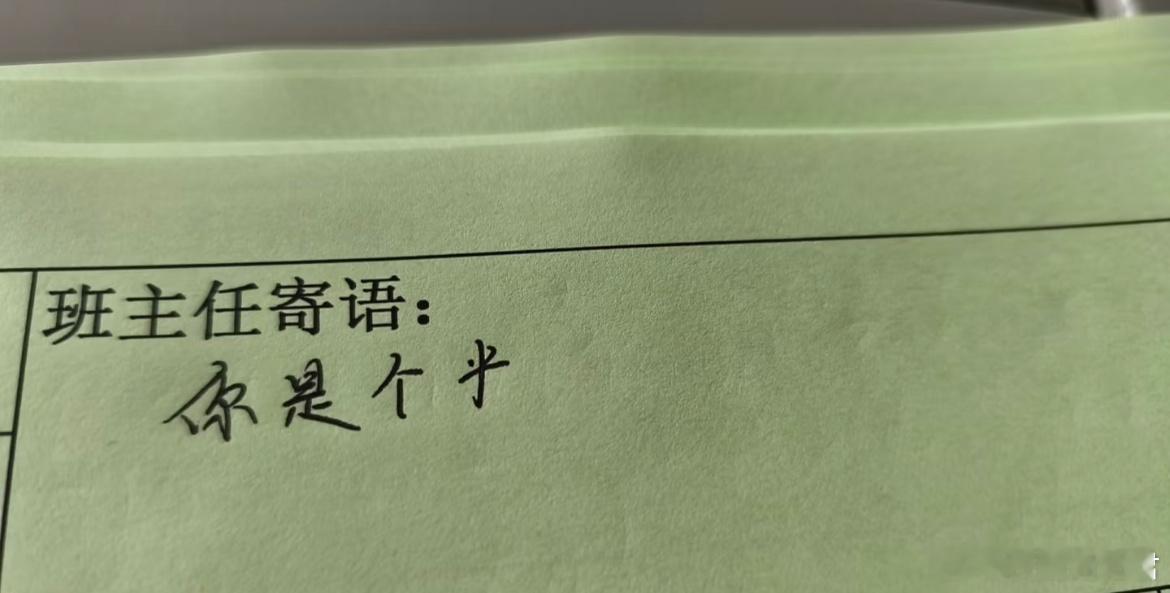 班主任寄语：
你是个半